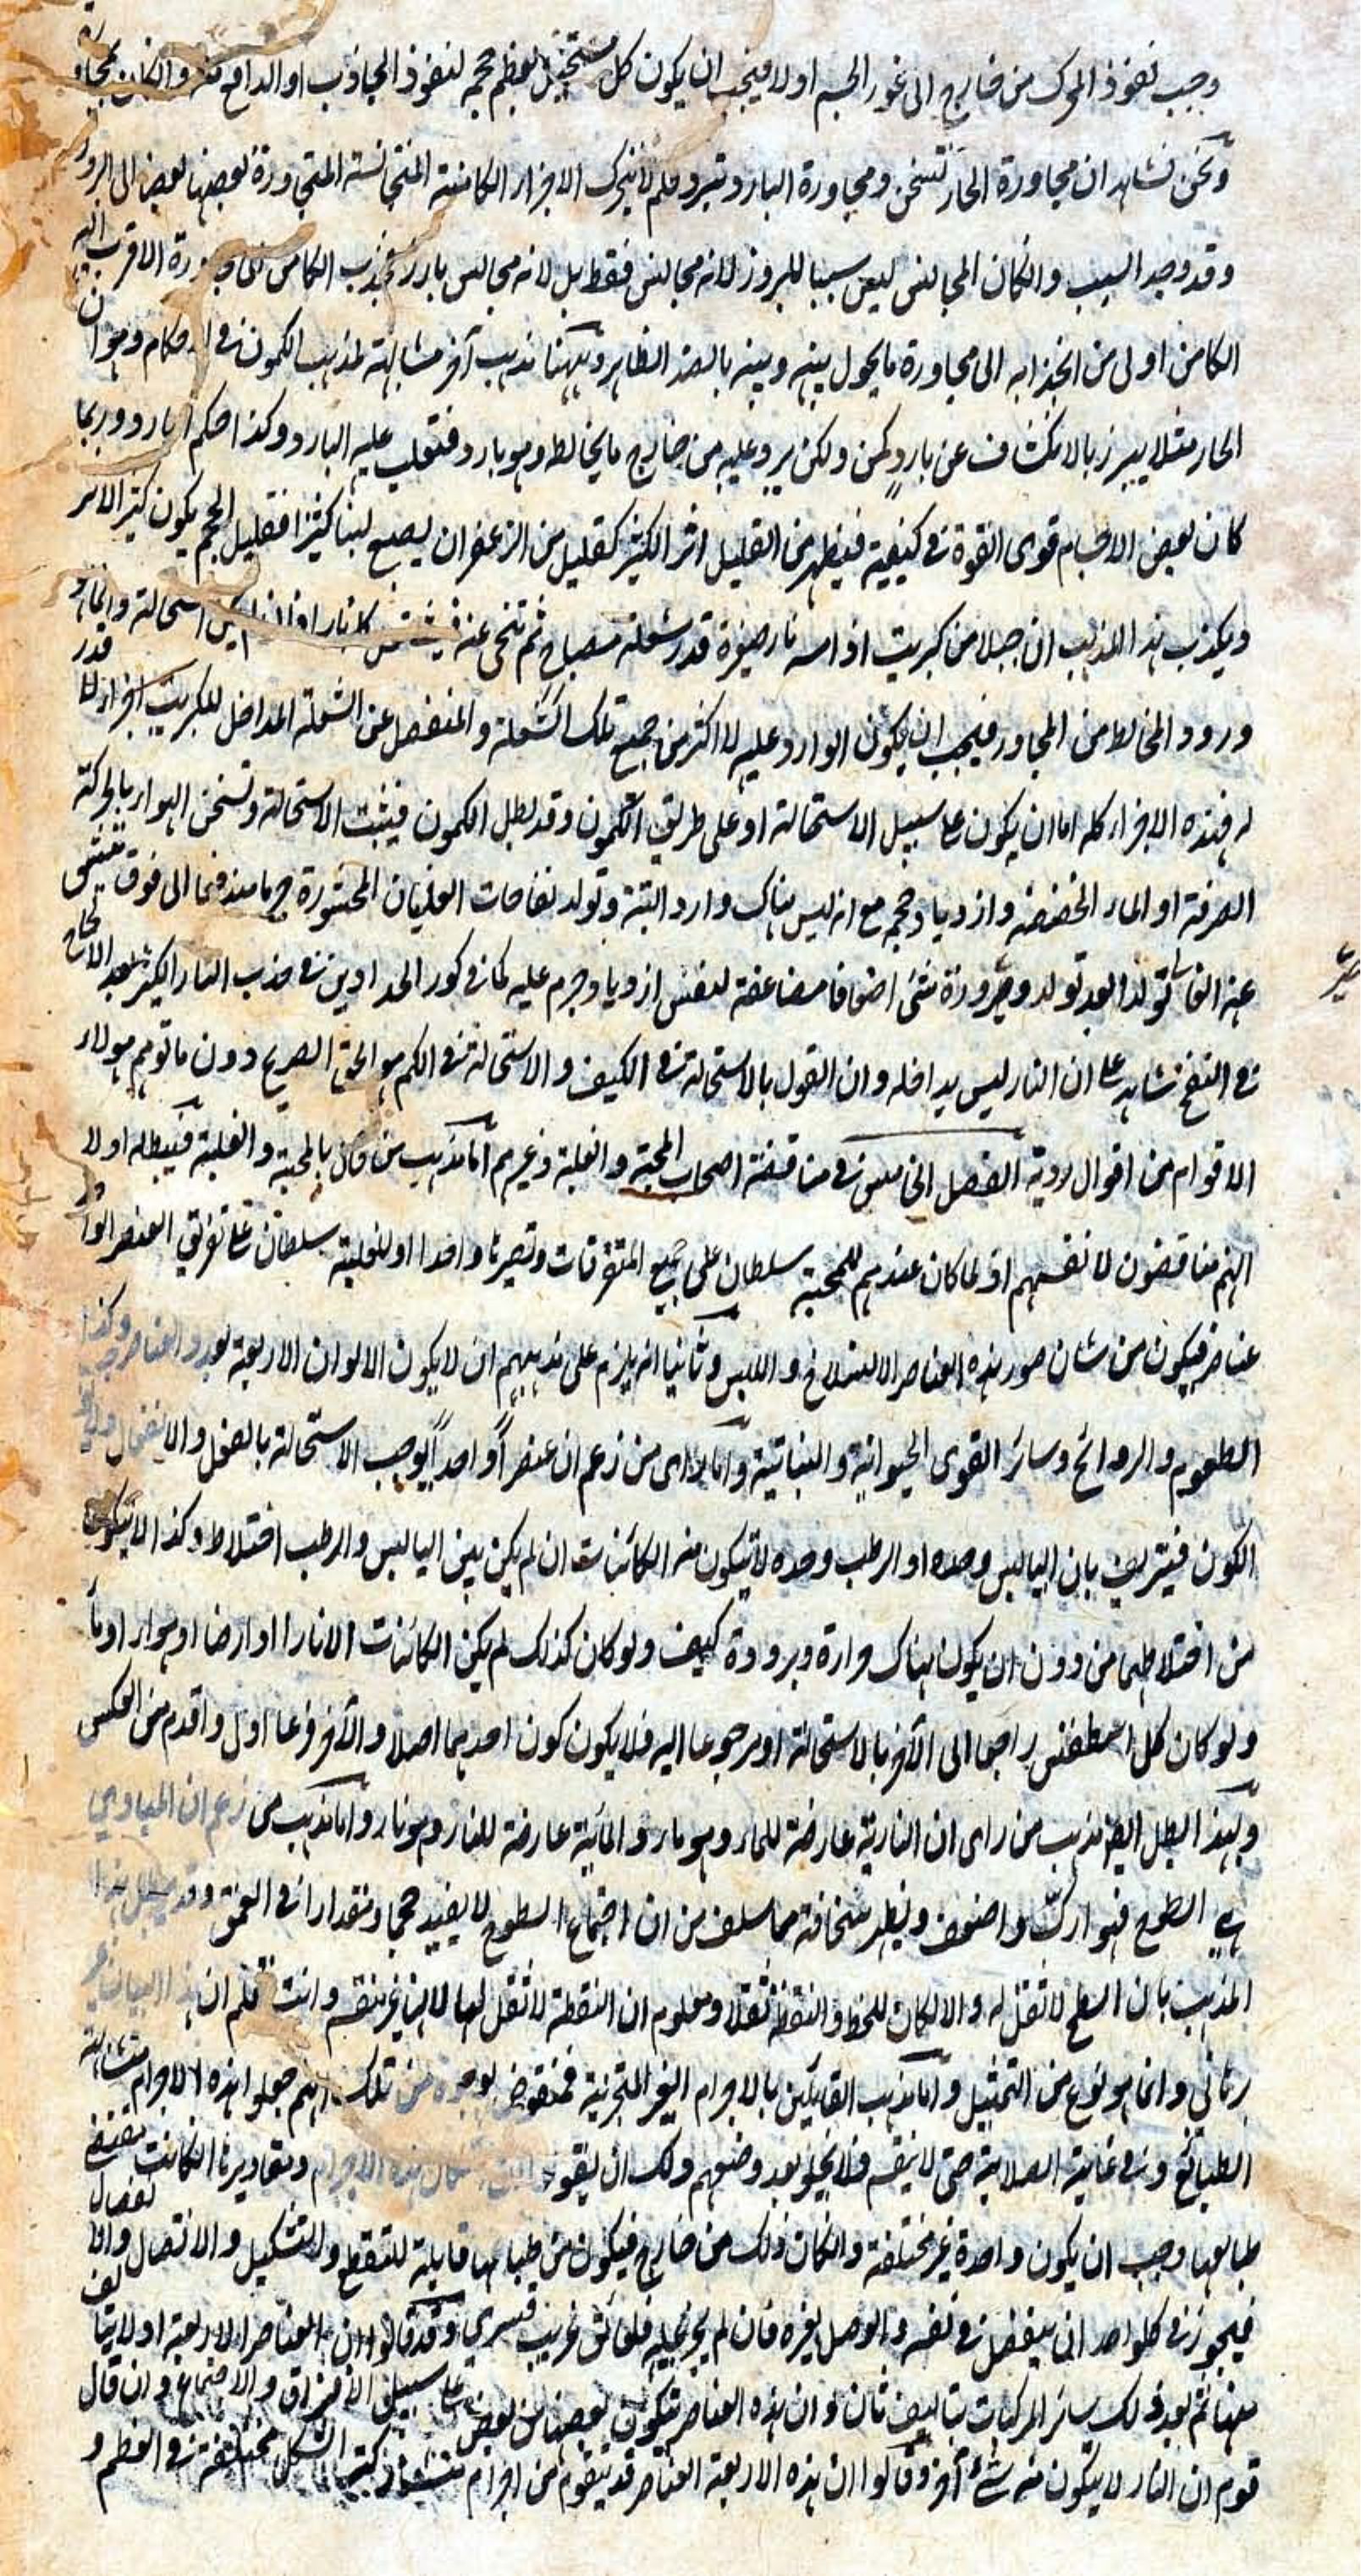 وجب نفوذ المحرك من خارج الى غور الجسم اولا فيجب ان يكون كل مستحيل يعظم حجمه لنفوذ الجاذب او الدافع فيه والكان مجاو
ونحن نشاهد ان مجاورة الحار تسخن ومجاورة البارد تبرد فلم لا تتحرك الاجزاء الكامنة المتجانسة المتجاورة بعضها بعضا الى البروز
وقد وجد السبب والكان المجانس ليس سببا للبروز لانه مجانس فقط بل لانه مجانس بارز فجذب الكامن الى مجاورة الاقرب اليه
الكامن اولى من انجذابه الى مجاورة ما يحول بينه وبينه بالضد الظاهر وههنا مذهب آخر مشابهة لمذهب الكمون في احكام وهو ان
الحار مثلا يبرز بالانكشاف عن بارد كمن ولكن يرد عليه من خارج ما يخالطه وهو بارد فتغلب عليه البارد وكذا حكم البارد وربما
كان بعض الاجسام قوى القوة في كيفية فيظهر من القليل اثر الكثير كقليل من الزعفران يصبغ لبنا كثيرا فقليل الحجم يكون كثير الاثر
ويكذب هذا المذهب ان جبلا من كبريت اذا مسه نار صغيرة قدر شعلة مصباح ثم تنحى عنه فيشتعل كله نارا استحالة وانما هو
ورود المخالط من المجاور فيجب ان يكون الوارد عليه لا اكثر من جميع تلك الشعلة والمنفصل عن الشعلة المداخل للكبريت اجزاء لا قدر
له فهذه الاجزاء كله اما ان يكون على سبيل الاستحالة او على طريق الكمون وقد بطل الكمون فيثبت الاستحالة وتسخن الهواء بالحركة
الصرفة او الماء الخضخضة وازدياد حجمه مع انه ليس هناك وارد البتة وتولد نفاخات الغليان المحشورة ح ما مندفعا الى فوق تنشق
عنه النفاخات تولدا بعد تولد وصيرورة شئ اضعافا مضاعفة لنفس ازدياد جرم عليه كما في كور الحدادين في جذب النار الكبير بعد الالحاح
في النفخ شاهد على ان النار ليس يداخله وان القول بالاستحالة في الكيف والاستحالة في الكم هو الحق الصريح دون ما توهم هولاء
الاقوام من اقوال ردية الفصل الخامس في مناقضة اصحاب المحبة والغلبة وغيرهم اما مذهب من قال بالمحبة والغلبة فيبطله اولا
انهم مناقضون لانفسهم اذ لما كان عندهم للمحبة سلطان على جميع المتفرقات وتصيرها واحدا او للغلبة سلطان على تفريق العنصر الواحد
عناصر فيكون من شان صور هذه العناصر الانسلاخ واللبس وثانيا انه يلزم على مذهبهم ان لا يكون الالوان الاربعة بعدد العناصر وكذا
الطعوم والروائح وسائر القوى الحيوانية والنباتية واما رأى من زعم ان عنصرا واحدا يوجب الاستحالة بالفعل والانفعال
الكون فيتزيف بان اليابس وحده او الرطب وحده لا يتكون منه الكائنات ان لم يكن بين اليابس والرطب اختلاط وكذا لا يتكون
من اختلاطهما من دون ان يكون هناك حرارة وبرودة كيف ولو كان كذلك لم يكن الكائنات الا نارا او ارضا او هواء او ماء
ولو كان كل اسطقس راجعا الى الآخر بالاستحالة او مرجوعا اليه فلا يكون كون احدهما اصلا والآخر فرعا اولى واقدم من العكس
وبهذا بطل ايضا مذهب من راى ان النارية عارضة للماء وهو ماء والمائية عارضة للنار وهو نار واما مذهب من زعم ان المبادي
هي السطوح فهو ارك واضعف ويظهر سخافته مما سلف من ان اجتماع السطوح لا يفيد حجما ومقدارا في العمق وقد يبطل هذا
المذهب بان السطح لا ثقل له والا لكان للخط والنقطة ثقلا ومعلوم ان النقطة لا ثقل لها لانها غير منقسم وانت تعلم ان هذا البيان غير
برهاني وانما هو نوع من التمثيل واما مذهب القائلين بالاجرام الغير المتجزئة فمنقوض بوجوه من تلك انهم جعلوا هذه الاجرام متشابهة
الطبائع وفي غاية الصلابة حتى لا ينقسم فلا يخلو بعد وضعهم ذلك ان يقولوا ان اشكال هذه الاجرام ومقاديرها الكانت تقتضى
طبايعها وجب ان يكون واحدة غير مختلفة والكان ذلك من خارج فيكون من طباعها قابلية للتقطع والتشكيل والاتصال والانفصال
فيجوز في كل واحد ان ينفصل في نفسه والوصل بغيره فان لم يجز عليه فلعائق غريب قسري وقد قالوا ان العناصر الاربعة اولا يتالف
منها ثم بعد ذلك سائر المركبات بتاليف ثان وان هذه العناصر تتكون بعضها من بعض على سبيل الافتراق والاجتماع وان قال
قوم ان النار لا يتكون منه شئ آخر وقالوا ان هذه الاربعة العناصر قد يتقوم من اجرام الشكل مختلفة في العظم و